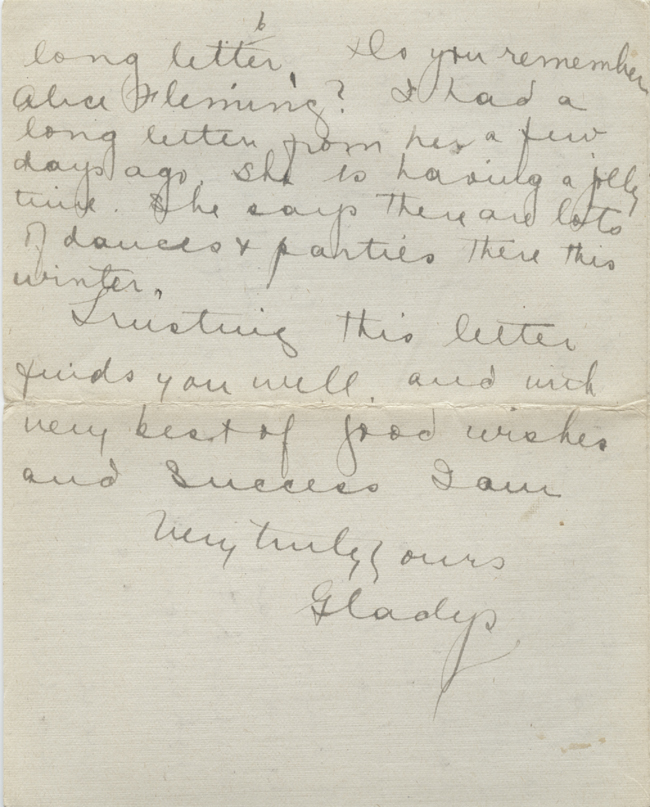 6
long letter. Do you remember
Alice Fleming? I had a
long letter from her a few
days ago. She is having a jolly
time. She says there are lots
of dances & parties there this
winter.
Trusting this letter
finds you well, and with
very best of good wishes
and success I am
Very truly yours
Gladys